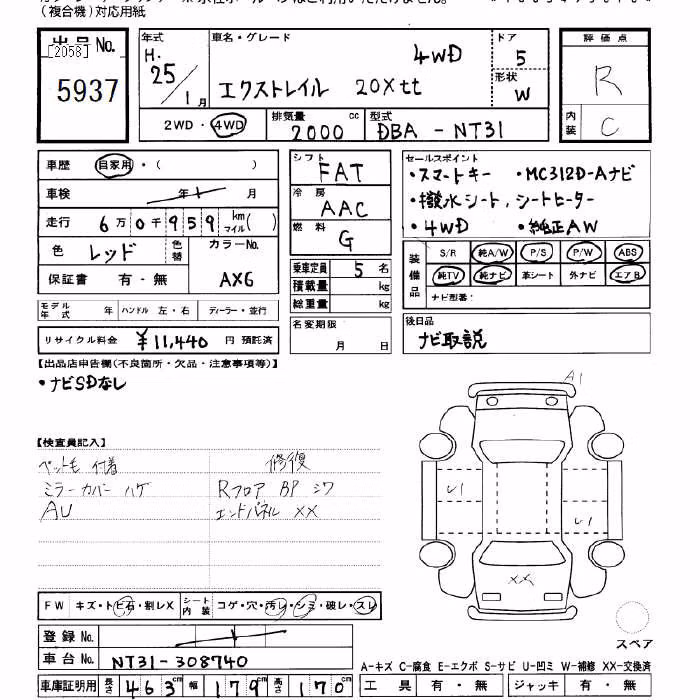 (複合機)対応用紙
出品No.
[2058]
5937
年式
H.
25/1月
車名・グレード
4WD
エクストレイル 20Xtt
ドア
5
形状
W
評価点
R
内装
C
2WD・4WD
排気量
2000 cc
型式
DBA-NT31
車歴 自家用・( )
車検 年 月
走行 6万0千959 km マイル( )
色 レッド 色替
カラーNo.
AX6
保証書 有・無
モデル年式 年 ハンドル 左・右 ディーラー・並行
リサイクル料金 ¥11,440 円 預託済
シフト
FAT
冷房
AAC
燃料
G
乗車定員 5名
積載量 kg
総重量 kg
名変期限
月 日
セールスポイント
・スマートキー ・MC312D-Aナビ
・撥水シート,シートヒーター
・4WD ・純正AW
装備品
S/R 純A/W P/S P/W ABS
純TV 純ナビ 革シート 外ナビ エアB
ナビ型番:
後日品
ナビ取説
【出品店申告欄(不良箇所・欠品・注意事項等)】
・ナビSDなし
【検査員記入】
ペット毛 付着
ミラーカバー ハゲ
AU
修復
Rフロア BP シワ
エンドパネル XX
A1
U1
U1
XX
スペア
FW キズ・トビ石・割レX
シート内装 コゲ・穴・汚レ・シミ・破レ・スレ
登録No.
車台No. NT31-308740
車庫証明用 長さ 463cm 幅 179cm 高さ 170cm
A-キズ C-腐食 E-エクボ S-サビ U-凹ミ W-補修 XX-交換済
工具 有・無 ジャッキ 有・無